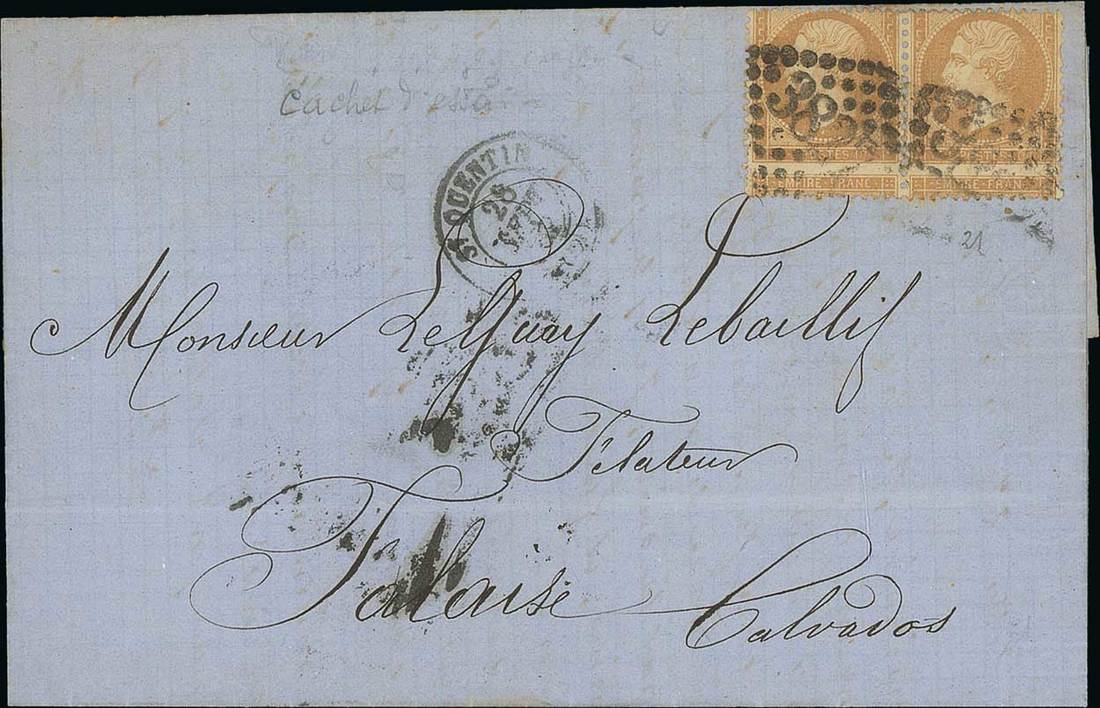 Cachet d'essai
ST QUENTIN
28
EMPIRE FRANC
EMPIRE FRANC
21
Monsieur LeQuay Lebaillif
Filateur
Falaise
Calvados